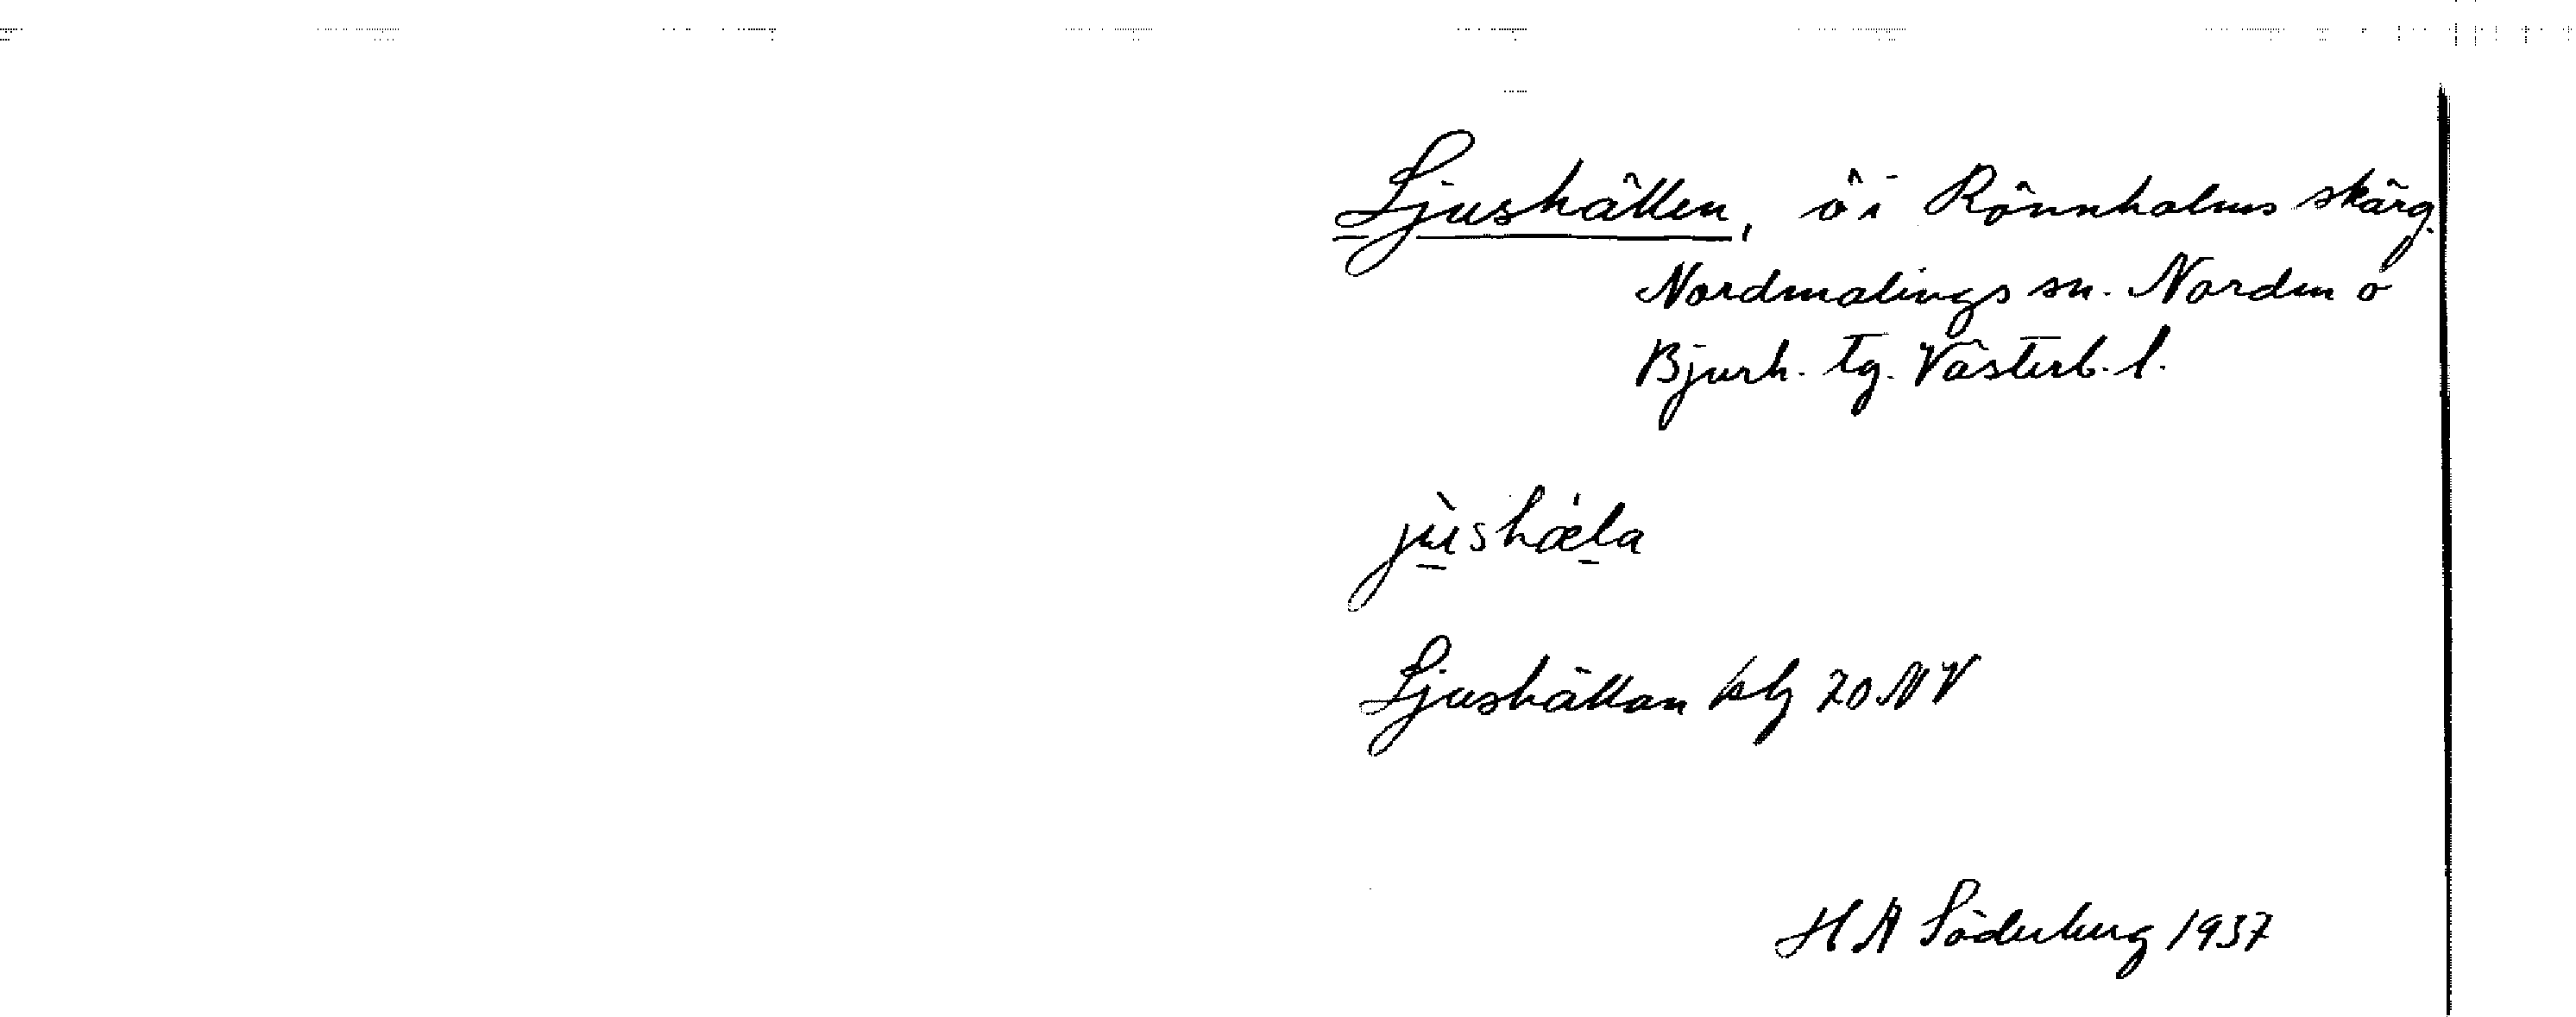 Ljushällen, ö i Rönnholms skärg.
Nordmalings sn. Nordm o
Bjurh. tg. Västerb. l.
jùshǽla
Ljushällan kbl 70 NV
H A Söderberg 1937